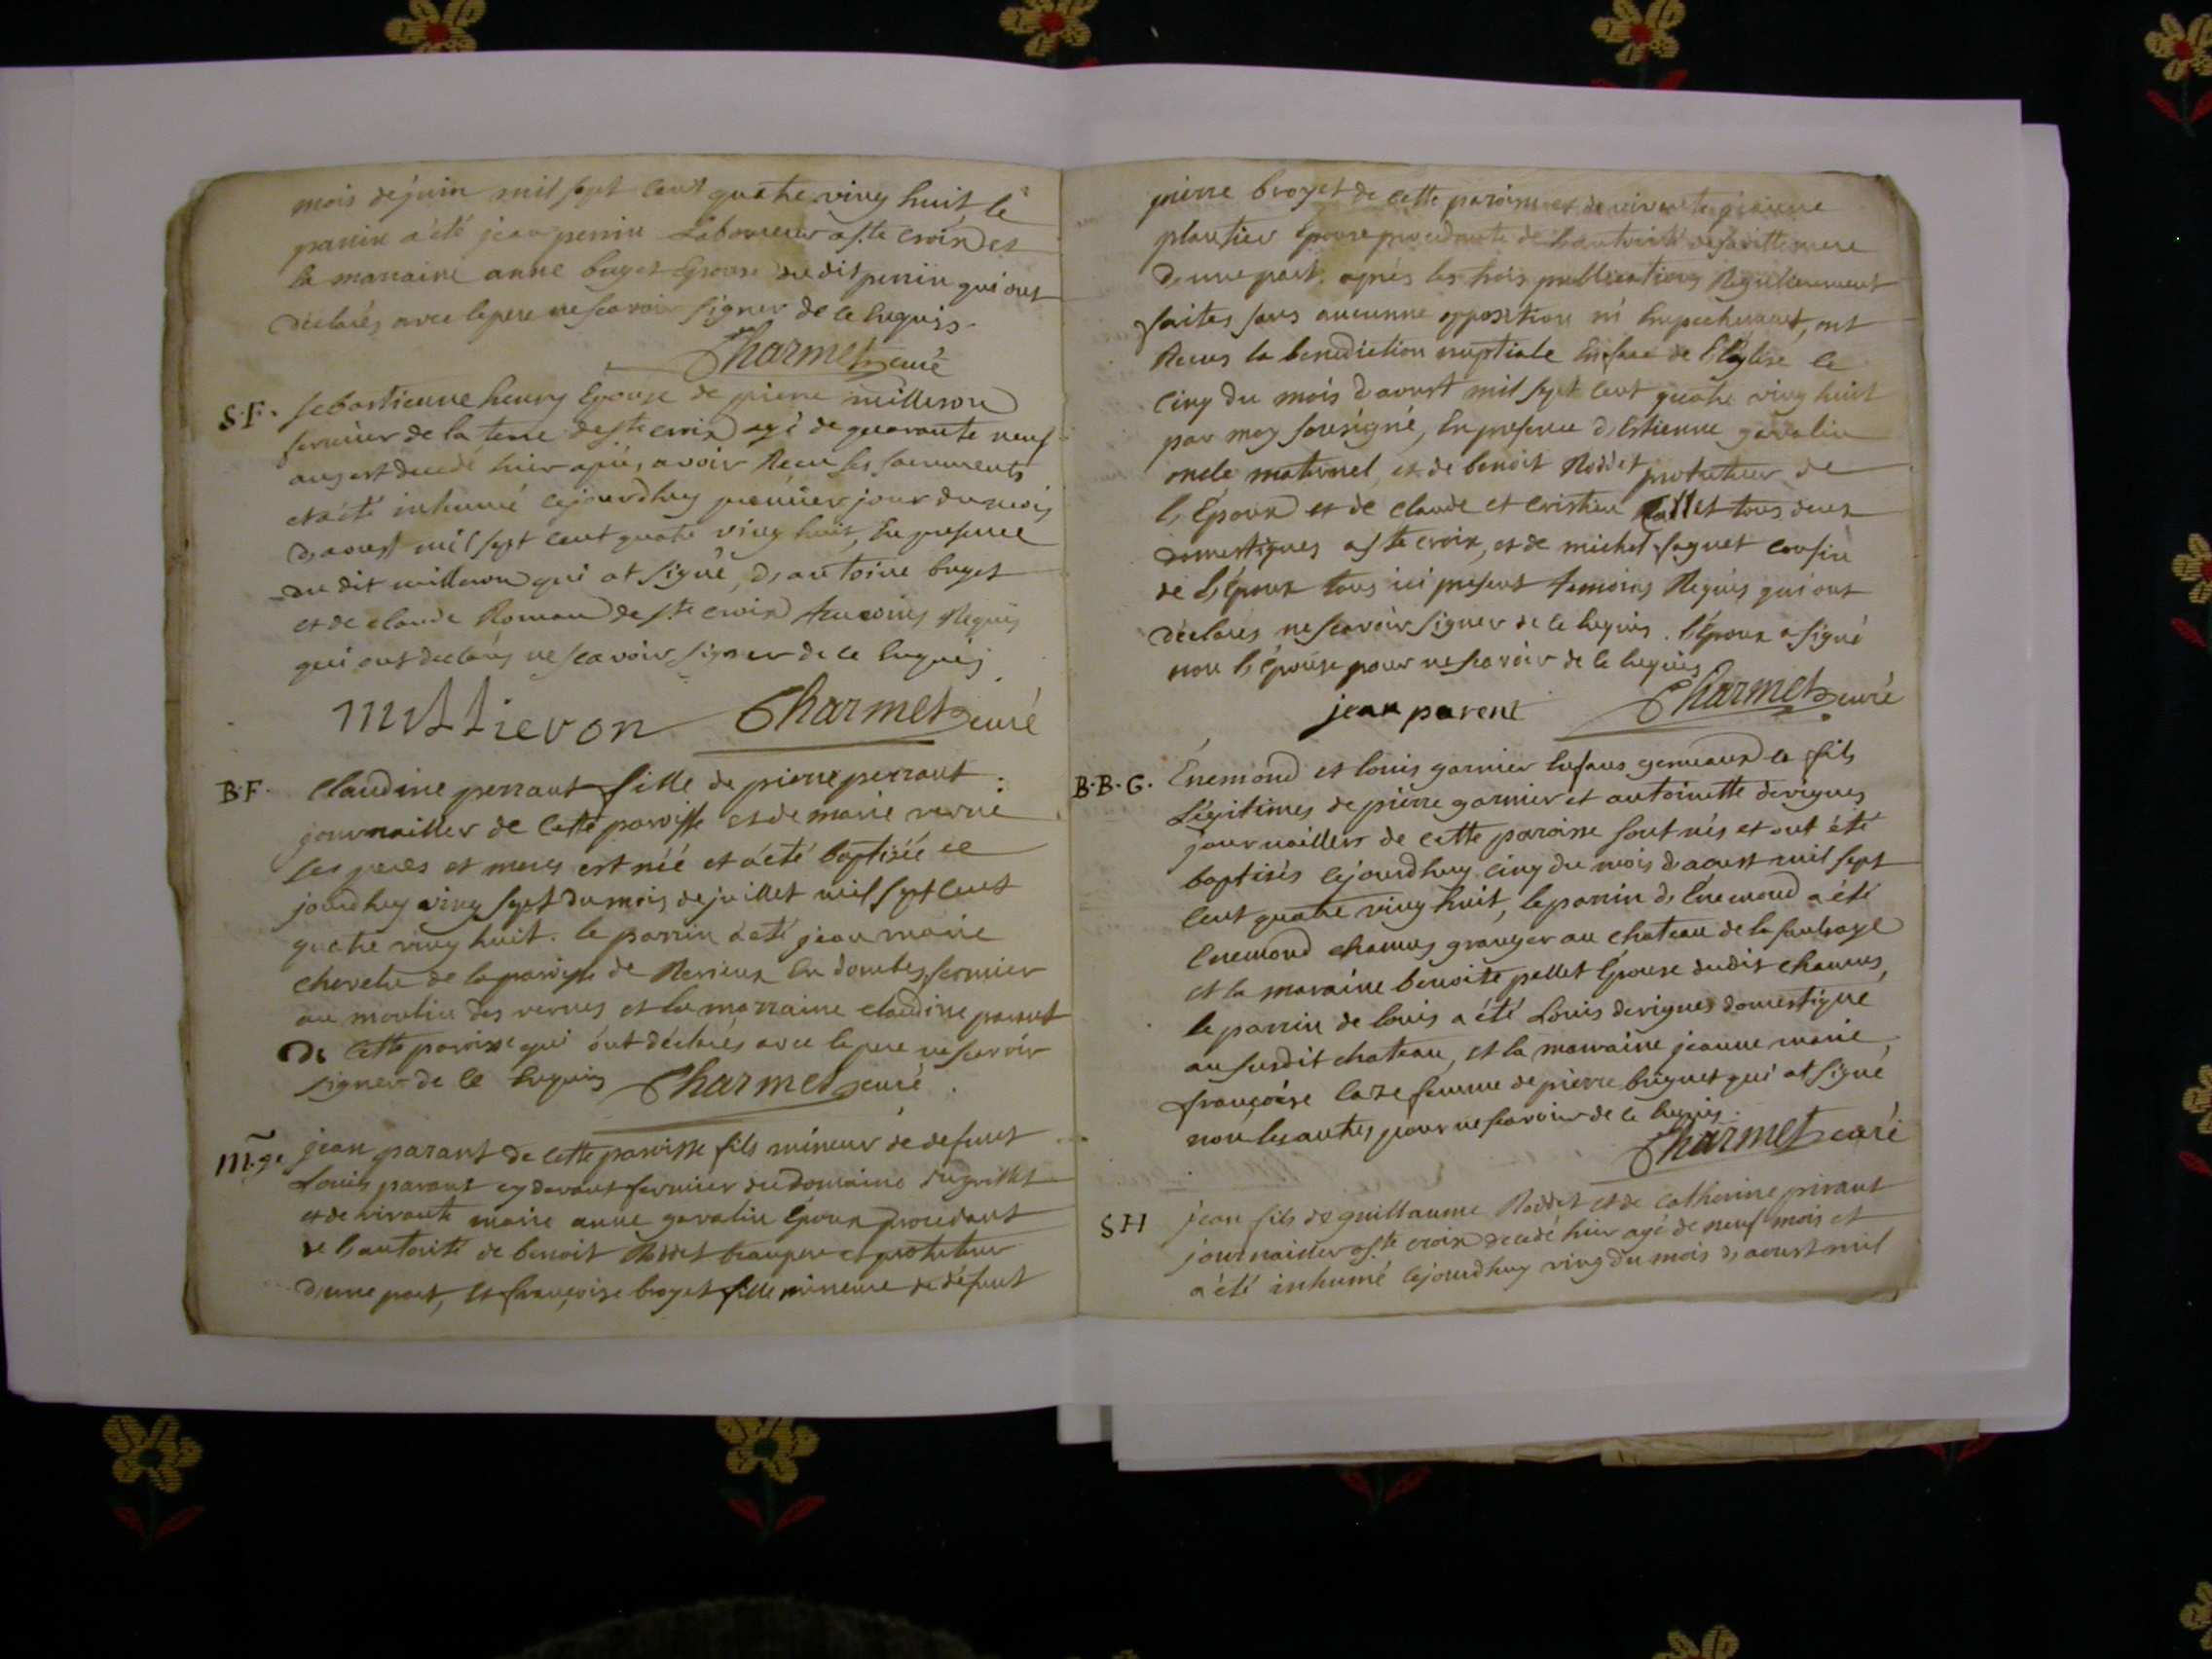 mois de juin mil sept cent quatre ving huit le
parrin a été jean perrin Laboureur a s.te croix et
la marraine anne buget Epouse du dit perrin qui ont
déclarés avec le pere ne scavoir signer de ce Enquis.
Charmet curé
S.F. sebastienne henry Epouse de pierre millieron
fermier de la terre de s.te croix agé de quarante neuf
ans est decedé hier apres avoir Receu les sacrements
et a été inhumé cejourdhuy premier jour du mois
d'aoust mil sept cent quatre ving huit, En presence
du dit millieron qui at signé, d'antoine buget
et de claude Roman de s.te croix temoins Requis
qui ont declarés ne scavoir signer de ce Enquis.
Millievon Charmet curé
B.F. Claudine perraut fille de pierre perraut
journailler de Cette paroisse et de marie verne
ses peres et meres est née et a été baptisée ce
jourdhuy ving sept du mois de juillet mil sept cent
quatre ving huit. le parrin a été jean marie
chevelu de la paroisse de Rerieux En dombes fermier
au moulin des vernes et la marraine claudine perraut
De Cette paroisse qui ont déclarés avec le pere ne scavoir
signer de ce Enquis Charmet curé.
m.ge jean parant de cette paroisse fils mineur de defunt
Louis parant cy devant fermier du domaine du grillet
et de vivante marie anne gavalin Epoux procedant
de l'autorité de benoit Roddet beaupere et protuteur
d'une part, et françoise broyet fille mineure de défunt
pierre broyet de cette paroisse et de vivante jeanne
plantier Epouse procedante de l'autorité de sa ditte mere
d'une part. aprés les trois publications Regulierement
faites sans aucunne opposition ni Empechement, ont
Receus la benediction nuptiale En face de l'Eglise le
cinq du mois d'aoust mil sept cent quatre ving huit
par moy sousigné, En presence d'Estienne gavalin
oncle maternel, et de benoit Roddet protuteur de
l'Epoux et de claude et cristin tous deux
domestiques a s.te croix, et de michel faguet cousin
de l'Epoux tous ici present temoins Requis qui ont
déclarés ne scavoir signer de ce Enquis. l'Epoux a signé
non l'Épouse pour ne scavoir de ce Enquis
jean parent Charmet curé
B.B.G. Énemond et louis garnier Enfans gemeaux et fils
Légitimes de pierre garnier et antoinette devignes
journaillers de cette paroisse sont nés et ont été
baptisés cejourdhuy cinq du mois d'aoust mil sept
cent quatre ving huit, le parrin d'Enemond a été
Enemond chamus granger au chateau de la saulsaye
et la maraine benoite pellet Épouse dudit chamus,
le parrin de louis a été Louis devignes domestique
au susdit chateau, et la marraine jeanne marie
françoise laze femme de pierre buguet qui at signé
non les autres pour ne scavoir de ce Enquis.
Charmet curé
S H jean fils de guillaume Roddet et de Catherine privaut
journailler a s.te croix decedé hier agé de neuf mois et
a été inhumé cejourdhuy ving du mois d'aoust mil